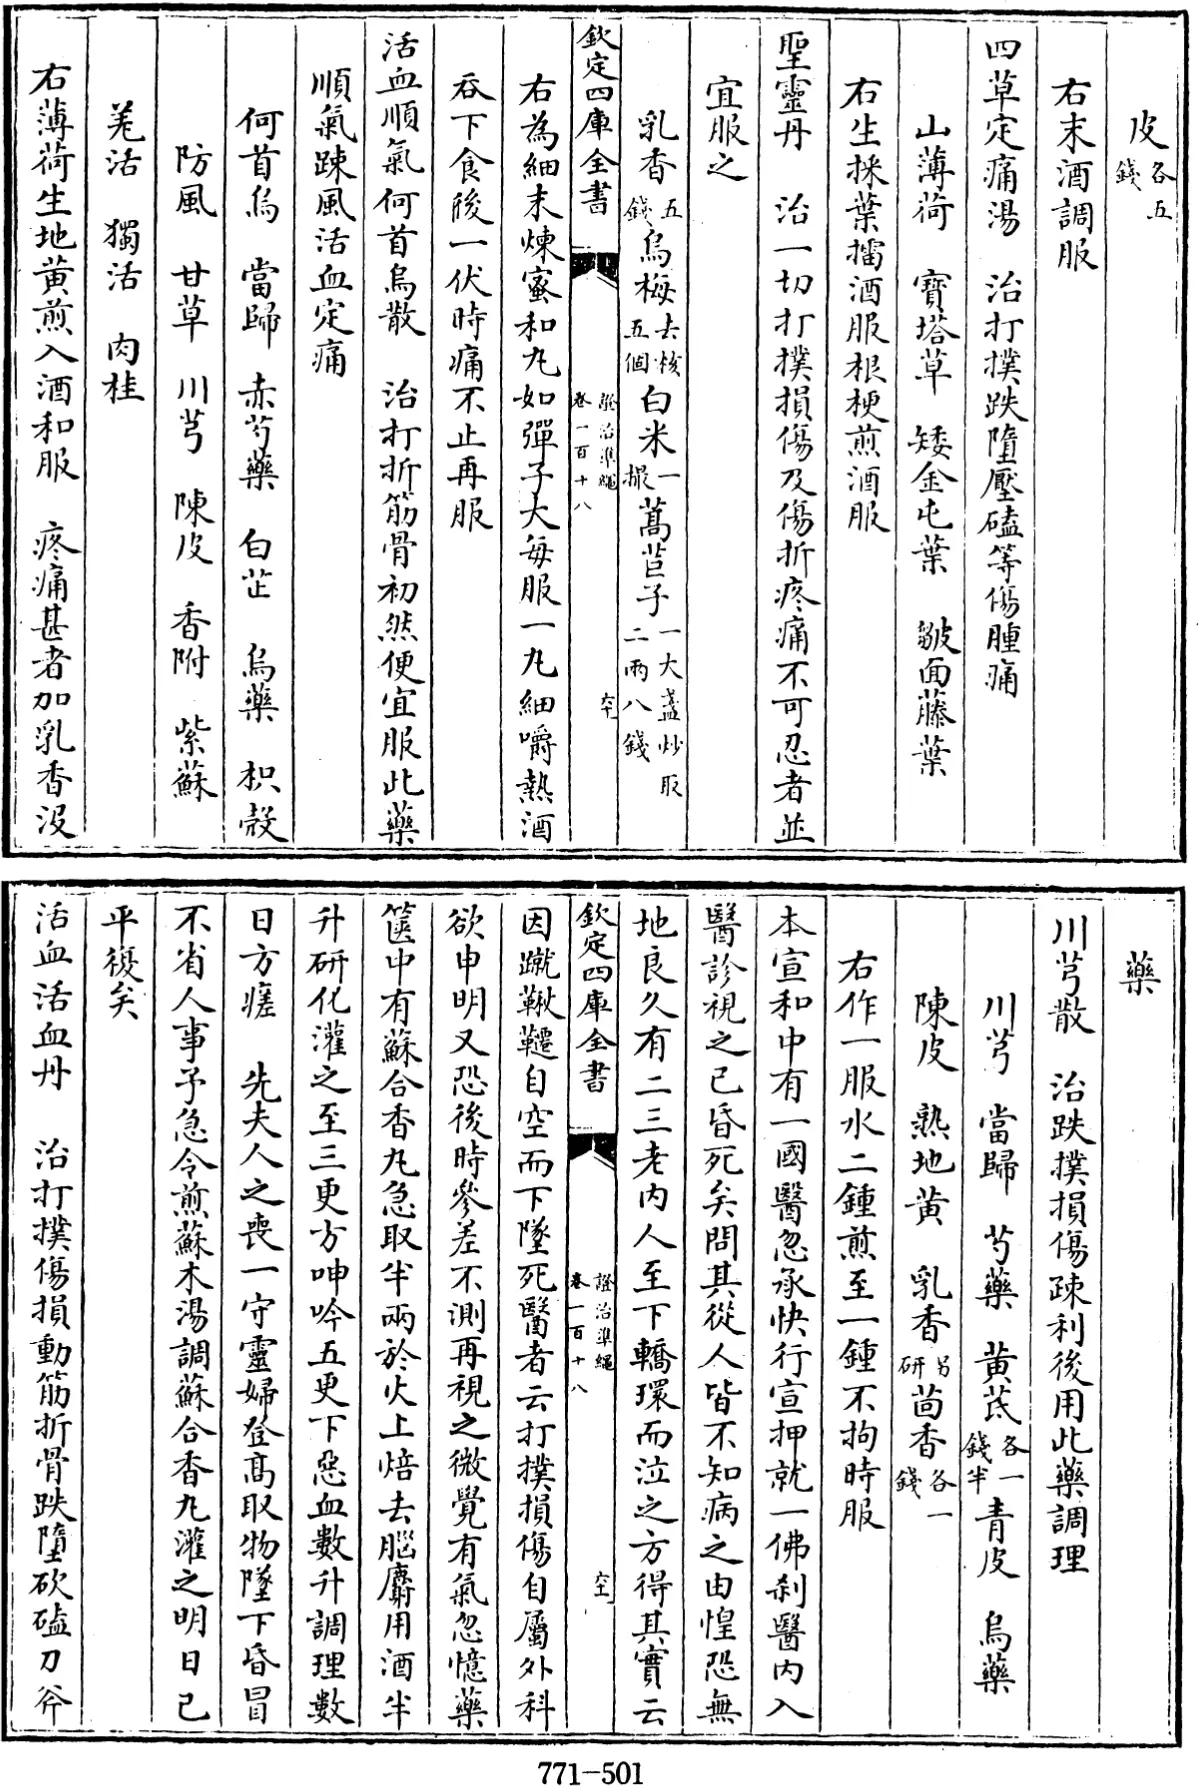 皮各五錢
右末酒調服
四草定痛湯　治打撲跌墮壓磕等傷腫痛
山薄荷　寶塔草　矮金屯葉　皺面藤葉
右生採葉擂酒服根梗煎酒服
聖靈丹　治一切打撲損傷及傷折疼痛不可忍者並
宜服之
乳香五錢烏梅去核五個白米一撮萵苣子一大盞炒取二兩八錢
欽定四庫全書　證治準繩卷一百十八
右為細末煉蜜和丸如彈子大每服一丸細嚼熱酒
吞下食後一伏時痛不止再服
活血順氣何首烏散　治打折筋骨初然便宜服此藥
順氣踈風活血定痛
何首烏　當歸　赤芍藥　白芷　烏藥　枳殼
防風　甘草　川芎　陳皮　香附　紫蘇
羌活　獨活　肉桂
右薄荷生地黃煎入酒和服　疼痛甚者加乳香沒
藥
川芎散　治跌撲損傷疎利後用此藥調理
川芎　當歸　芍藥　黃芪各一錢半青皮　烏藥
陳皮　熟地黃　乳香另研茴香各一錢
右作一服水二鍾煎至一鍾不拘時服
本宣和中有一國醫忽承快行宣押就一佛刹醫内人
醫診視之已昏死矣問其從人皆不知病之由惶恐無
地良久有二三老内人至下轎環而泣之方得其實云
欽定四庫全書　證治準繩卷一百十八
因蹴鞦韆自空而下墜死醫者云打撲損傷自屬外科
欲申明又恐後時參差不測再視之微覺有氣忽憶藥
篋中有蘇合香丸急取半兩於火上焙去腦麝用酒半
升研化灌之至三更方呻吟五更下惡血數升調理數
日方瘥　先夫人之喪一守靈婦登高取物墜下昏冒
不省人事予急令煎蘇木湯調蘇合香丸灌之明日已
平復矣
活血活血丹　治打撲傷損動筋折骨跌墮砍磕刀斧
771-501